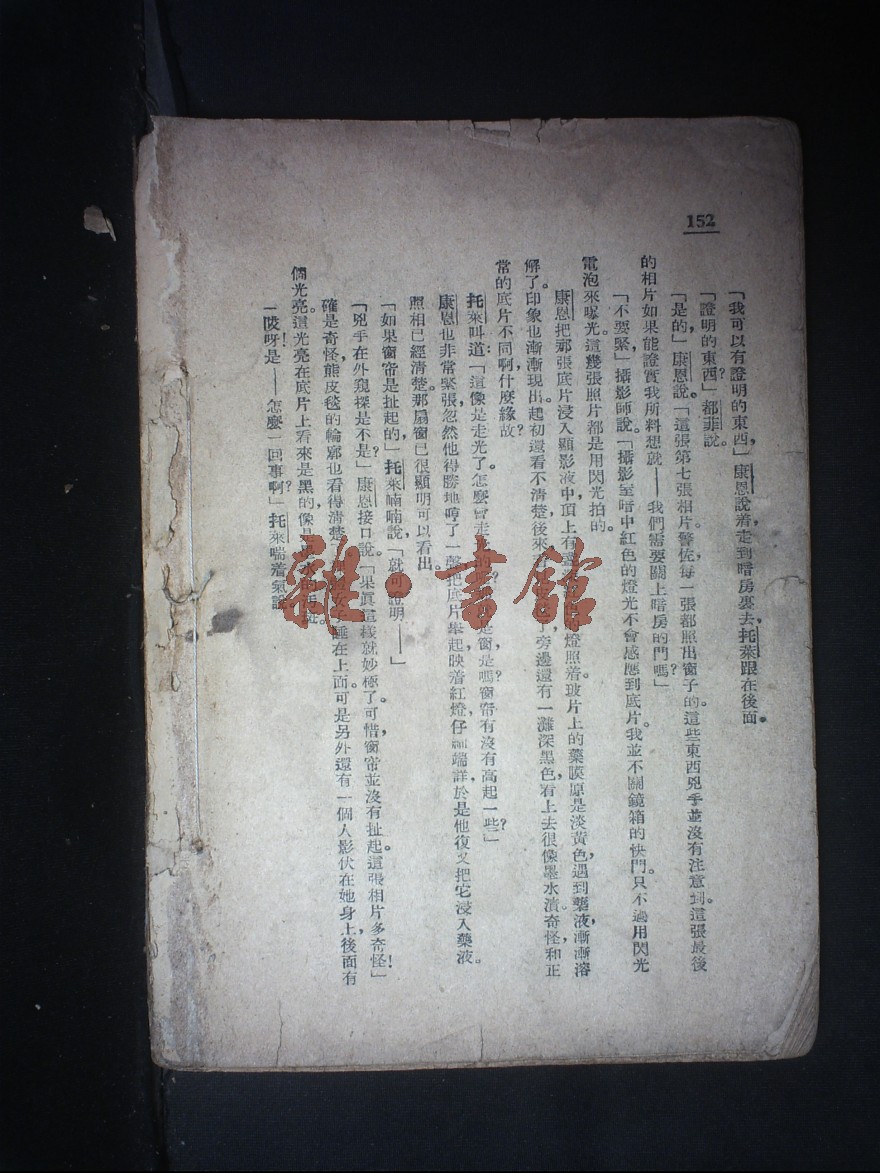 152
「我可以有證明的東西，」康恩說着，走到暗房裏去，托萊跟在後面。
「證明的東西？」都菲說。
「是的，」康恩說。「這張第七張相片，警佐，每一張都照出窗子的。這些東西兇手並沒有注意到。這張最後
的相片如果能證實我所料想，就——我們需要關上暗房的門嗎？」
「不要緊，」攝影師說。「攝影室暗中紅色的燈光不會感應到底片。我並不關鏡箱的快門，只不過用閃光
電泡來曝光。這幾張照片都是用閃光拍的。」
康恩把那張底片浸入顯影液中，頂上有 燈照着玻片上的藥膜原是淡黃色，遇到藥液，漸漸溶
解了。印象也漸漸現出。起初還看不清楚，後來 旁邊還有一灘深黑色，看上去很像墨水漬。奇怪，和正
常的底片不同啊，什麼緣故？
托萊叫道：「這像是走光了。怎麼會走 的 是窗，是嗎？窗帘有沒有高起一些？」
康恩也非常緊張，忽然他得勝地哼了一聲，把底片舉起，映着紅燈，仔細端詳，於是他復又把它浸入藥液。
照相已經清楚，那扇窗已很顯明可以看出。
「如果窗帘是扯起的，」托萊喃喃說，「就可證明——」
「兇手在外窺探，是不是？」康恩接口說。「果真這樣就妙極了。可惜窗帘並沒有扯起。這張相片多奇怪！」
確是奇怪，熊皮毯的輪廓也看得清楚， 女子睡在上面。可是另外還有一個人影伏在她身上，後面有
個光亮。這光亮在底片上看來是黑的，像是 水的 斑。
「哎呀！是——怎麼一回事啊？」托萊喘着氣說。
雜·書館